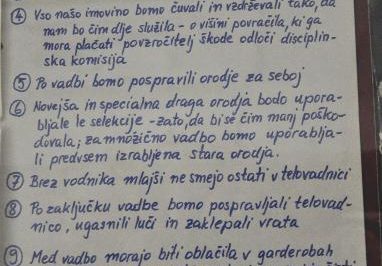 ④ Vso našo imovino bomo čuvali in vzdrževali tako, da
nam bo čim dlje služila - o višini povračila, ki ga
mora plačati povzročitelj škode odloči disciplin-
ska komisija
⑤ Po vadbi bomo pospravili orodje za seboj
⑥ Novejša in specialna draga orodja bodo upora-
bljale le selekcije - zato, da bi se čim manj poško-
dovala; za množično vadbo bomo uporablja-
li predvsem izrabljena stara orodja.
⑦ Brez vodnika mlajši ne smejo ostati v telovadnici
⑧ Po zaključku vadbe bomo pospravljali telovad-
nico, ugasnili luči in zaklepali vrata
⑨ Med vadbo morajo biti oblačila v garderobah